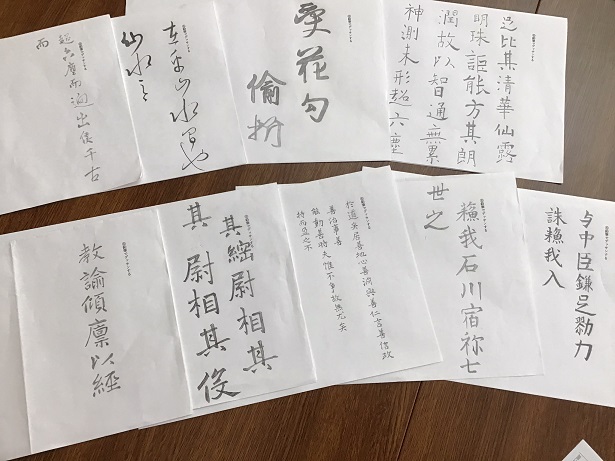 足比其清華仙露
明珠詎能方其朗
潤故以智通無累
神測未形超六塵
花勾
倫
山水
仙水
超六塵而迥出隻千古
而
与中臣鎌足勠力
誅蘓我入
蘓我石川宿祢七
世之
於道矣居善地心善淵與善仁言善信政
善治事善
能動善時夫惟不争故無尤矣
持而盈之不
其 尉相其
其 尉相其俊
教諭傾廩以經